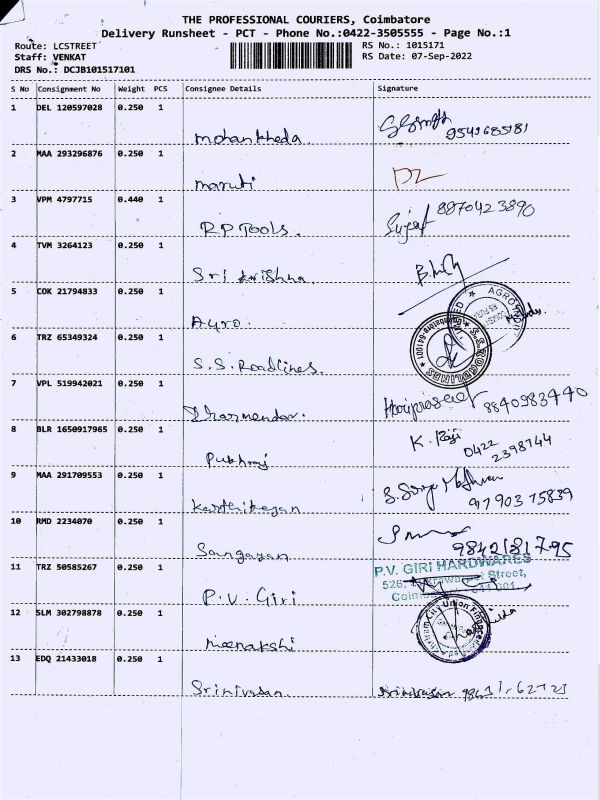 THE PROFESSIONAL COURIERS, Coimbatore
Delivery Runsheet - PCT - Phone No.:0422-3505555 - Page No.:1
Route: LCSTREET RS No.: 1015171
Staff: VENKAT RS Date: 07-Sep-2022
DRS No.: DCJB101517101
S No Consignment No Weight PCS Consignee Details Signature
1 DEL 120597028 0.250 1
mohankheda
2 MAA 293296876 0.250 1
maruti
3 VPM 4797715 0.440 1
R.P Tools. 8870423890
4 TVM 3264123 0.250 1
Sri krishna.
5 COK 21794833 0.250 1
Agro.
6 TRZ 65349324 0.250 1
S.S. Roadlines.
7 VPL 519942021 0.250 1
Dharmendar. Hariprasad 8840983440
8 BLR 1650917965 0.250 1
K. Raji 0422
2398144
9 MAA 291709553 0.250 1
Karthikeyan
10 RMD 2234070 0.250 1
9842181795
11 TRZ 50585267 0.250 1
P.V. GIRI HARDWARES
P.V. Giri
12 SLM 302798878 0.250 1
meenakshi
13 EDQ 21433018 0.250 1
Srinivasan. Srinivasan